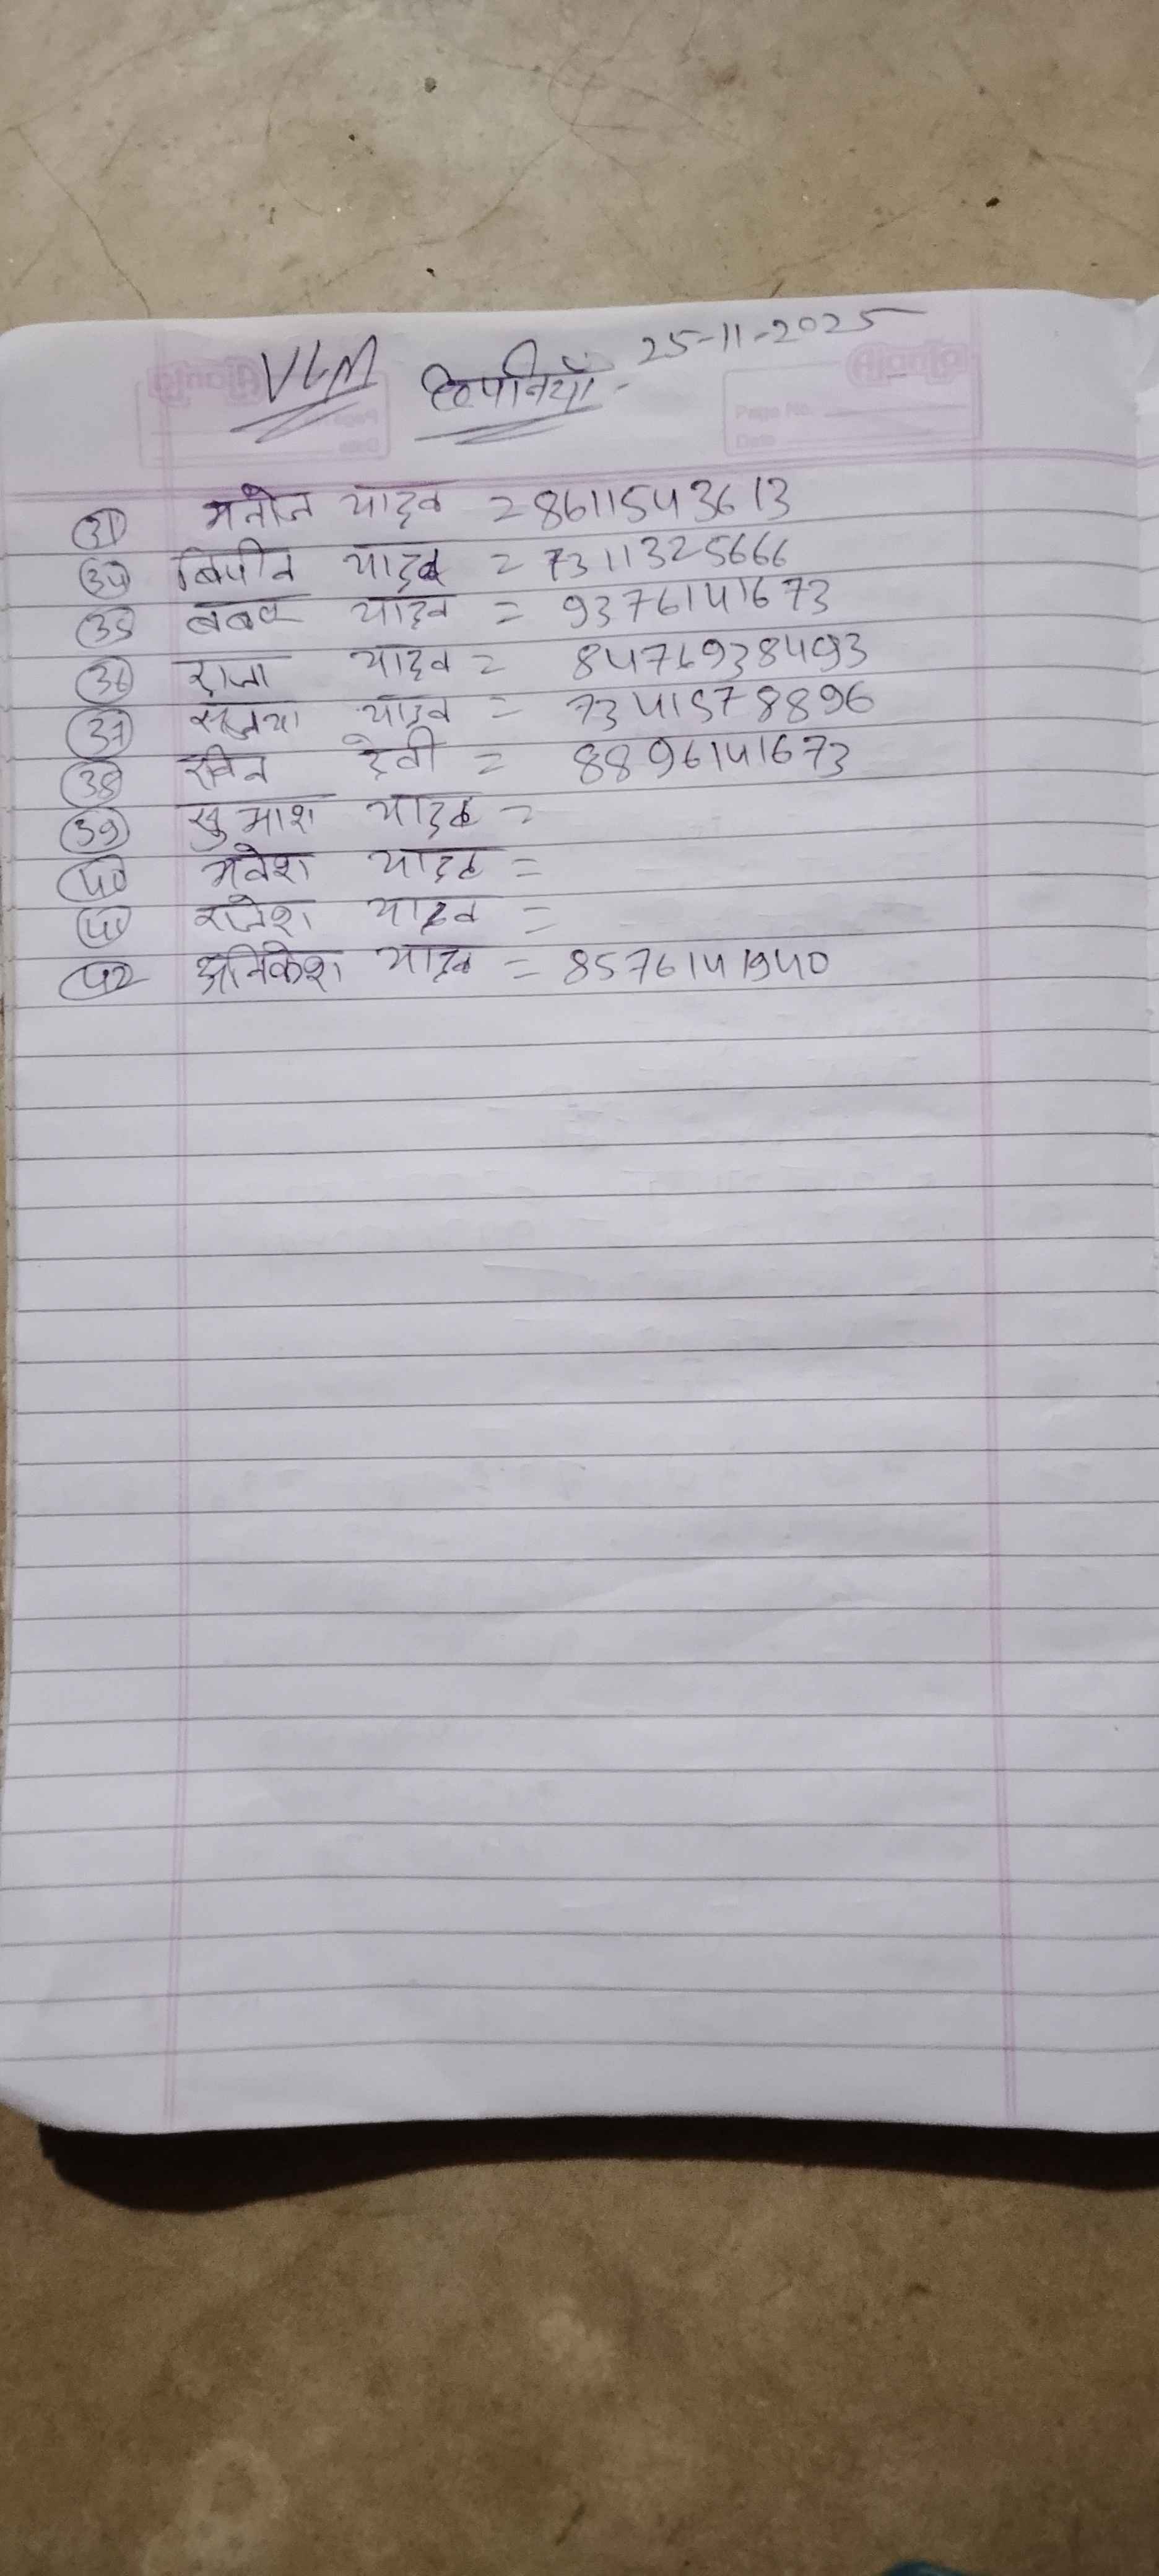 VLM टिपनियाँ - 25-11-2025
31 मनोज यादव = 8611543613
34 बिपीन यादव = 7311325666
35 बबव यादव = 9376141673
36 राजा यादव = 8476938493
37 यादव = 7341578896
38 देवी = 8896141673
39 सुभाश यादव =
40 यादव =
41 राजेश यादव =
42 अनिकेश यादव = 8576141940